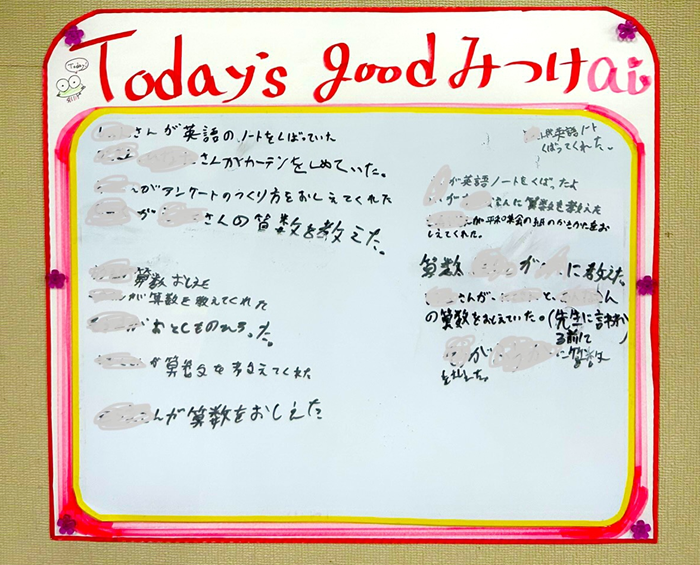 Today's good みつけai
Today
さんが英語のノートをくばっていた
さんがカーテンをしめていた。
がアンケートのつくり方をおしえてくれた
が さんの算数を教えた。
算数おしえた
が算数を教えてくれた
がおとしものひろった。
が算数を教えてくれた
んが算数をおしえた
英語ノート
くばってくれた。
が英語ノートをくばったよ
が さんに算数を教えた
が平和集会の紙のかきかたをお
しえてくれた。
算数 が に教えた
さんが、 と、 ん
の算数をおしえていた。(先生に言われ
る前に)
が に算数